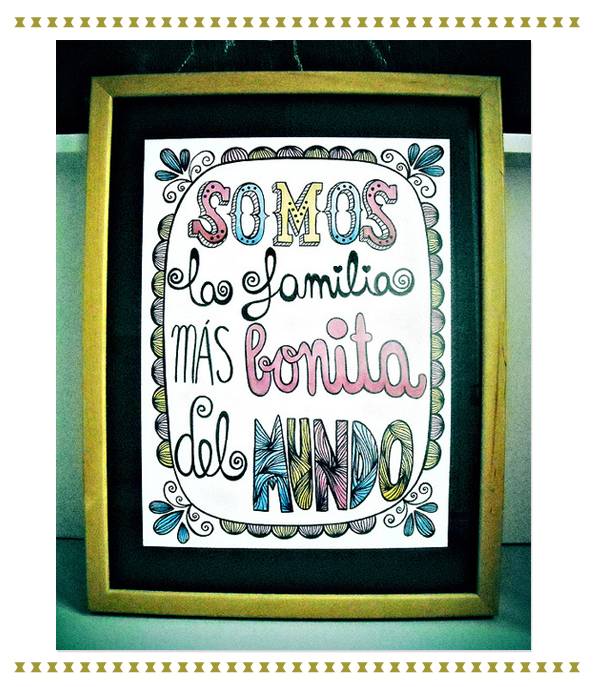 SOMOS
la familia
MÁS bonita
del MUNDO